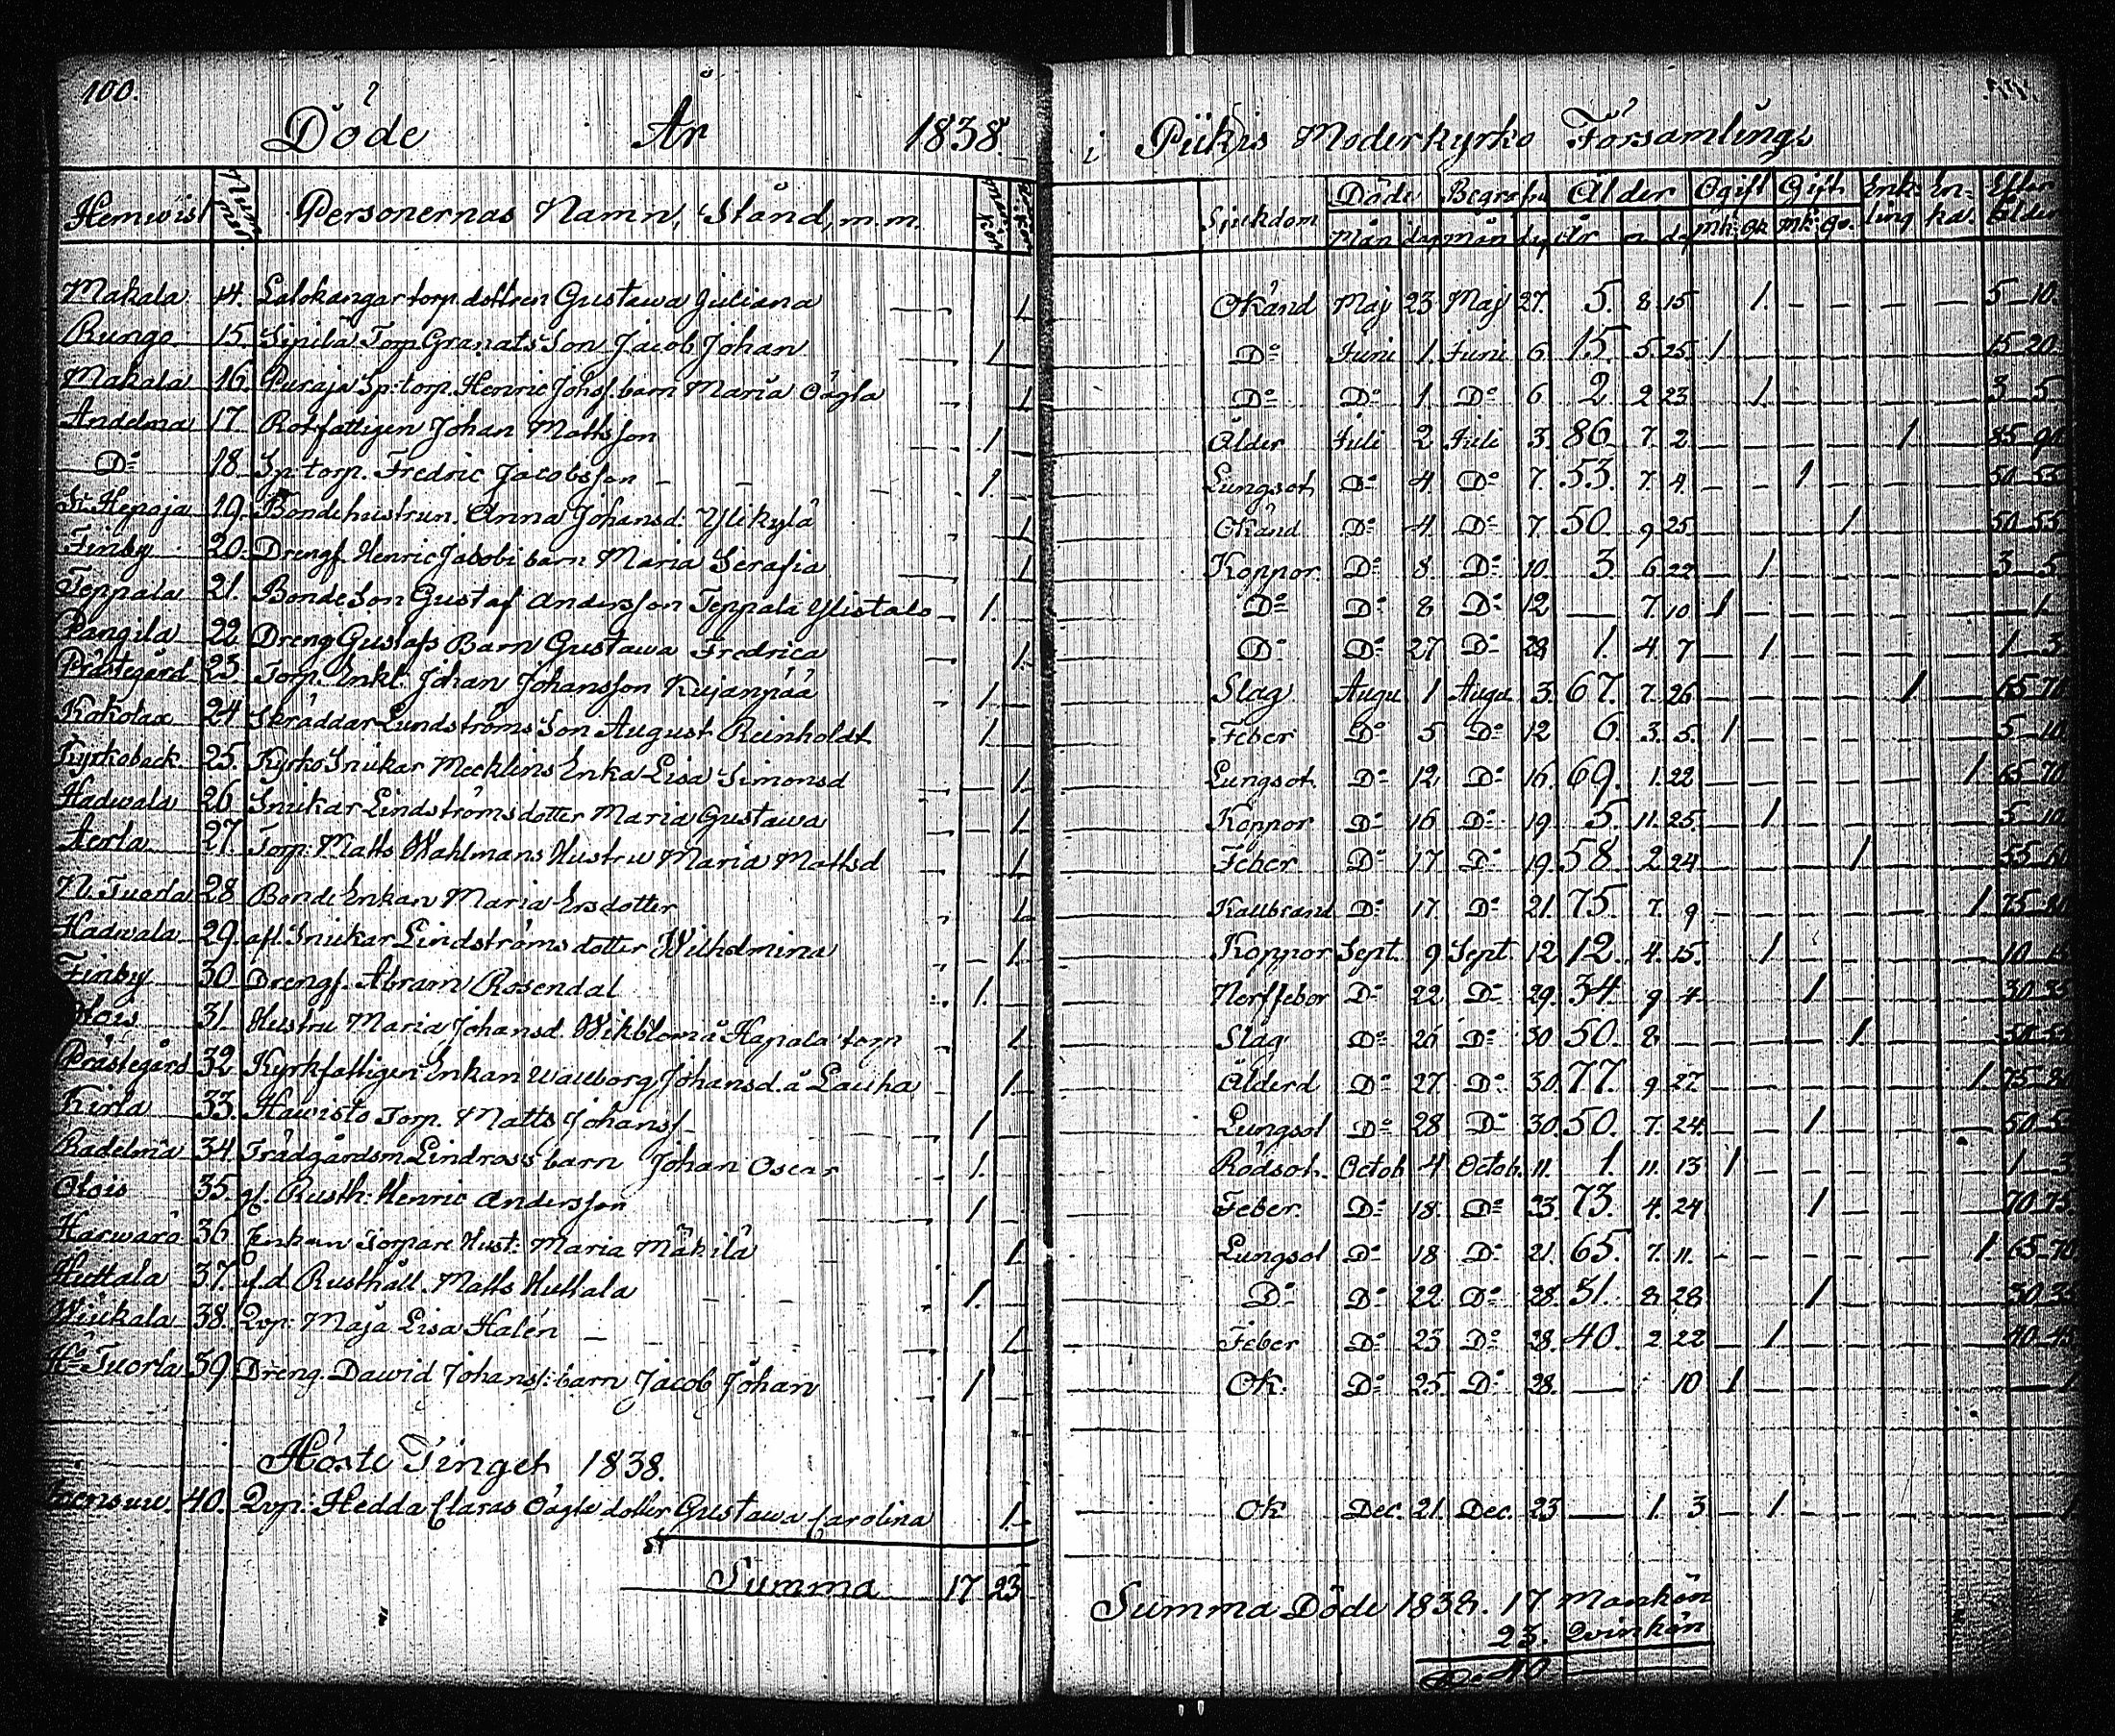 100.
Döde År 1838.
Hemwist Personernas Namn, Stånd, m.m.
Makala 14. Lalokangar torp. dottren Gustawa Juliana 1.
Rungo 15. Sipilä Torp. Granats Son Jacob Johan 1.
Makala 16. Puraja Sp: torp. Henric Johs. barn Maria 1.
Andelma 17. Rotfattigen Johan Mattsson 1.
Do 18. Sp: torp. Fredric Jacobsson 1.
St. Hepoja 19. Bondehustrun Anna Johansd: Ylikylä 1.
Finby 20. Drengf. Henric Jacobi barn Maria Serafia 1.
Teppala 21. Bonde Son Gustaf Andersson Teppala Ylistalo 1.
Pangila 22. Dreng Gustafs Barn Gustawa Fredrica 1.
Prästegård 23. Torp. Enkl. Johan Johansson Kujanpää 1.
Kokolax 24. Skräddar Lundströms Son August Reinholdt 1.
Kyrkoback 25. Kyrko Snickar Mecklins Enka Lisa Simonsd 1.
Hadwala 26. Snikar Lindströms dotter Maria Gustawa 1.
Aerla 27. Torp: Matts Wahlmans Hustru Maria Mattsd 1.
N. Tuorla 28. Bonde Enkan Maria Ersdotter 1.
Hadwala 29. afl. Snikar Lindströms dotter Wilhelmina 1.
Finby 30. Drengf. Abram Rosendal 1.
31. Hustru Maria Johansd. Wikblom å Hapala torp 1.
Prästegård 32. Kyrkfattigen Enkan Wallborg Johansd. å Lauha 1.
Kirla 33. Hawisto Torp. Matts Johanss. 1.
Radelma 34. Trädgårdsm Lindross barn Johan Oscar 1.
Otois 35. gl. Rusth: Henric Andersson 1.
Harwaro 36. Enkan Torpare Hust: Maria Mäkilä 1.
Huttala 37. f.d. Rusthåll. Matts Huttala 1.
Wiukala 38. Qvp: Maja Lisa Halén 1.
Ho Tuorla 39. Dreng. Dawid Johans: barn Jacob Johan 1.
Höste Tinget 1838.
40. Qvp: Hedda Claras dotter Gustawa Carolina 1.
Summa 17 23
i Piikis Moderkyrko Församling
Sjukdom Döde Begrafne Ålder Ogift Gift Enkling Enka. Efter Ålder
Mån dag Mån dag År m dag Mk. Qk Mk. Qv.
Okänd Maj 23 Maj 27. 5. 8. 15 1. 5–10.
Do Juni 1. Juni 6. 15. 5. 25. 1 15–20
Do Do 1. Do 6 2 2 23 1. 3–5
Ålder Juli 2 Juli 3. 86 7. 2. 1 85–90
Lungsot Do 4. Do 7. 53. 7. 4. 1 50–55
Okänd Do 4 Do 7. 50. 9 25 1. 50–55
Koppor Do 8. Do 10. 3. 6 22 1 3–5
Do Do 8 Do 12 — 7. 10 1 — 1.
Do Do 27 Do 29 1. 4. 7 1 1–3
Slag Augu. 1 Augu. 3. 67. 7. 26 1 65–70
Feber Do 5 Do 12 6. 3. 5. 1 5–10
Lungsot. Do 12 Do 16. 69. 1. 22 1. 65–70
Koppor Do 16 Do 19. 5. 11. 25. 1 5–10
Feber Do 17 Do 19. 58 2. 24 1 55–60
Kallbrand Do 17 Do 21. 75. 7. 9 1. 75–80
Koppor Sept. 9 Sept. 12 12. 4. 15. 1 10–15
Nerffeber Do 22 Do 29. 34 9 4 1 30–35
Slag Do 26 Do 30 50. 8 1. 50–55
Ålderd Do 27. Do 30. 77. 9. 27. 1. 75–80
Lungsot Do 28 Do 30. 50. 7. 24. 1 50–55
Rödsot. Octob. 4 Octob. 11. 1. 11. 13 1 1–3
Feber. Do 18. Do 23. 73. 4. 24 1 70–75
Lungsot Do 18 Do 21. 65. 7. 11. 1. 65–70
Do Do 22 Do 28. 31. 8 28 1 30–35
Feber Do 23 Do 28. 40. 2 22 1 40–45
Ok. Do 25 Do 28. — 10 1 — 1
Ok Dec. 21. Dec. 23 — 1. 3 1. — 1
Summa Döde 1838. 17 Mankön
23. Qvinkön
40